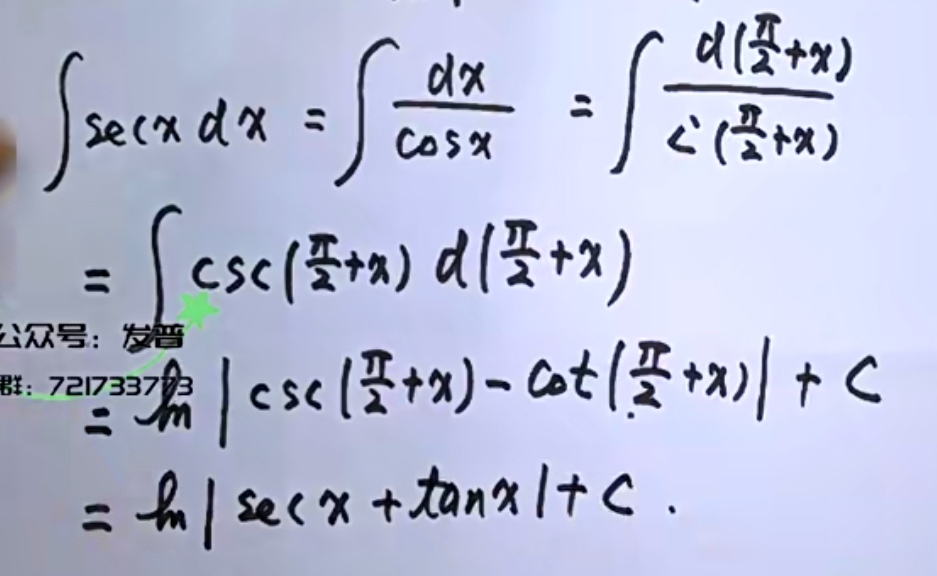 ∫ sec x dx = ∫ dx/cos x = ∫ d(π/2+x)/s(π/2+x)
= ∫ csc(π/2+x) d(π/2+x)
公众号：发普
群：721733773
= ln|csc(π/2+x) - cot(π/2+x)| + C
= ln|sec x + tan x| + C.